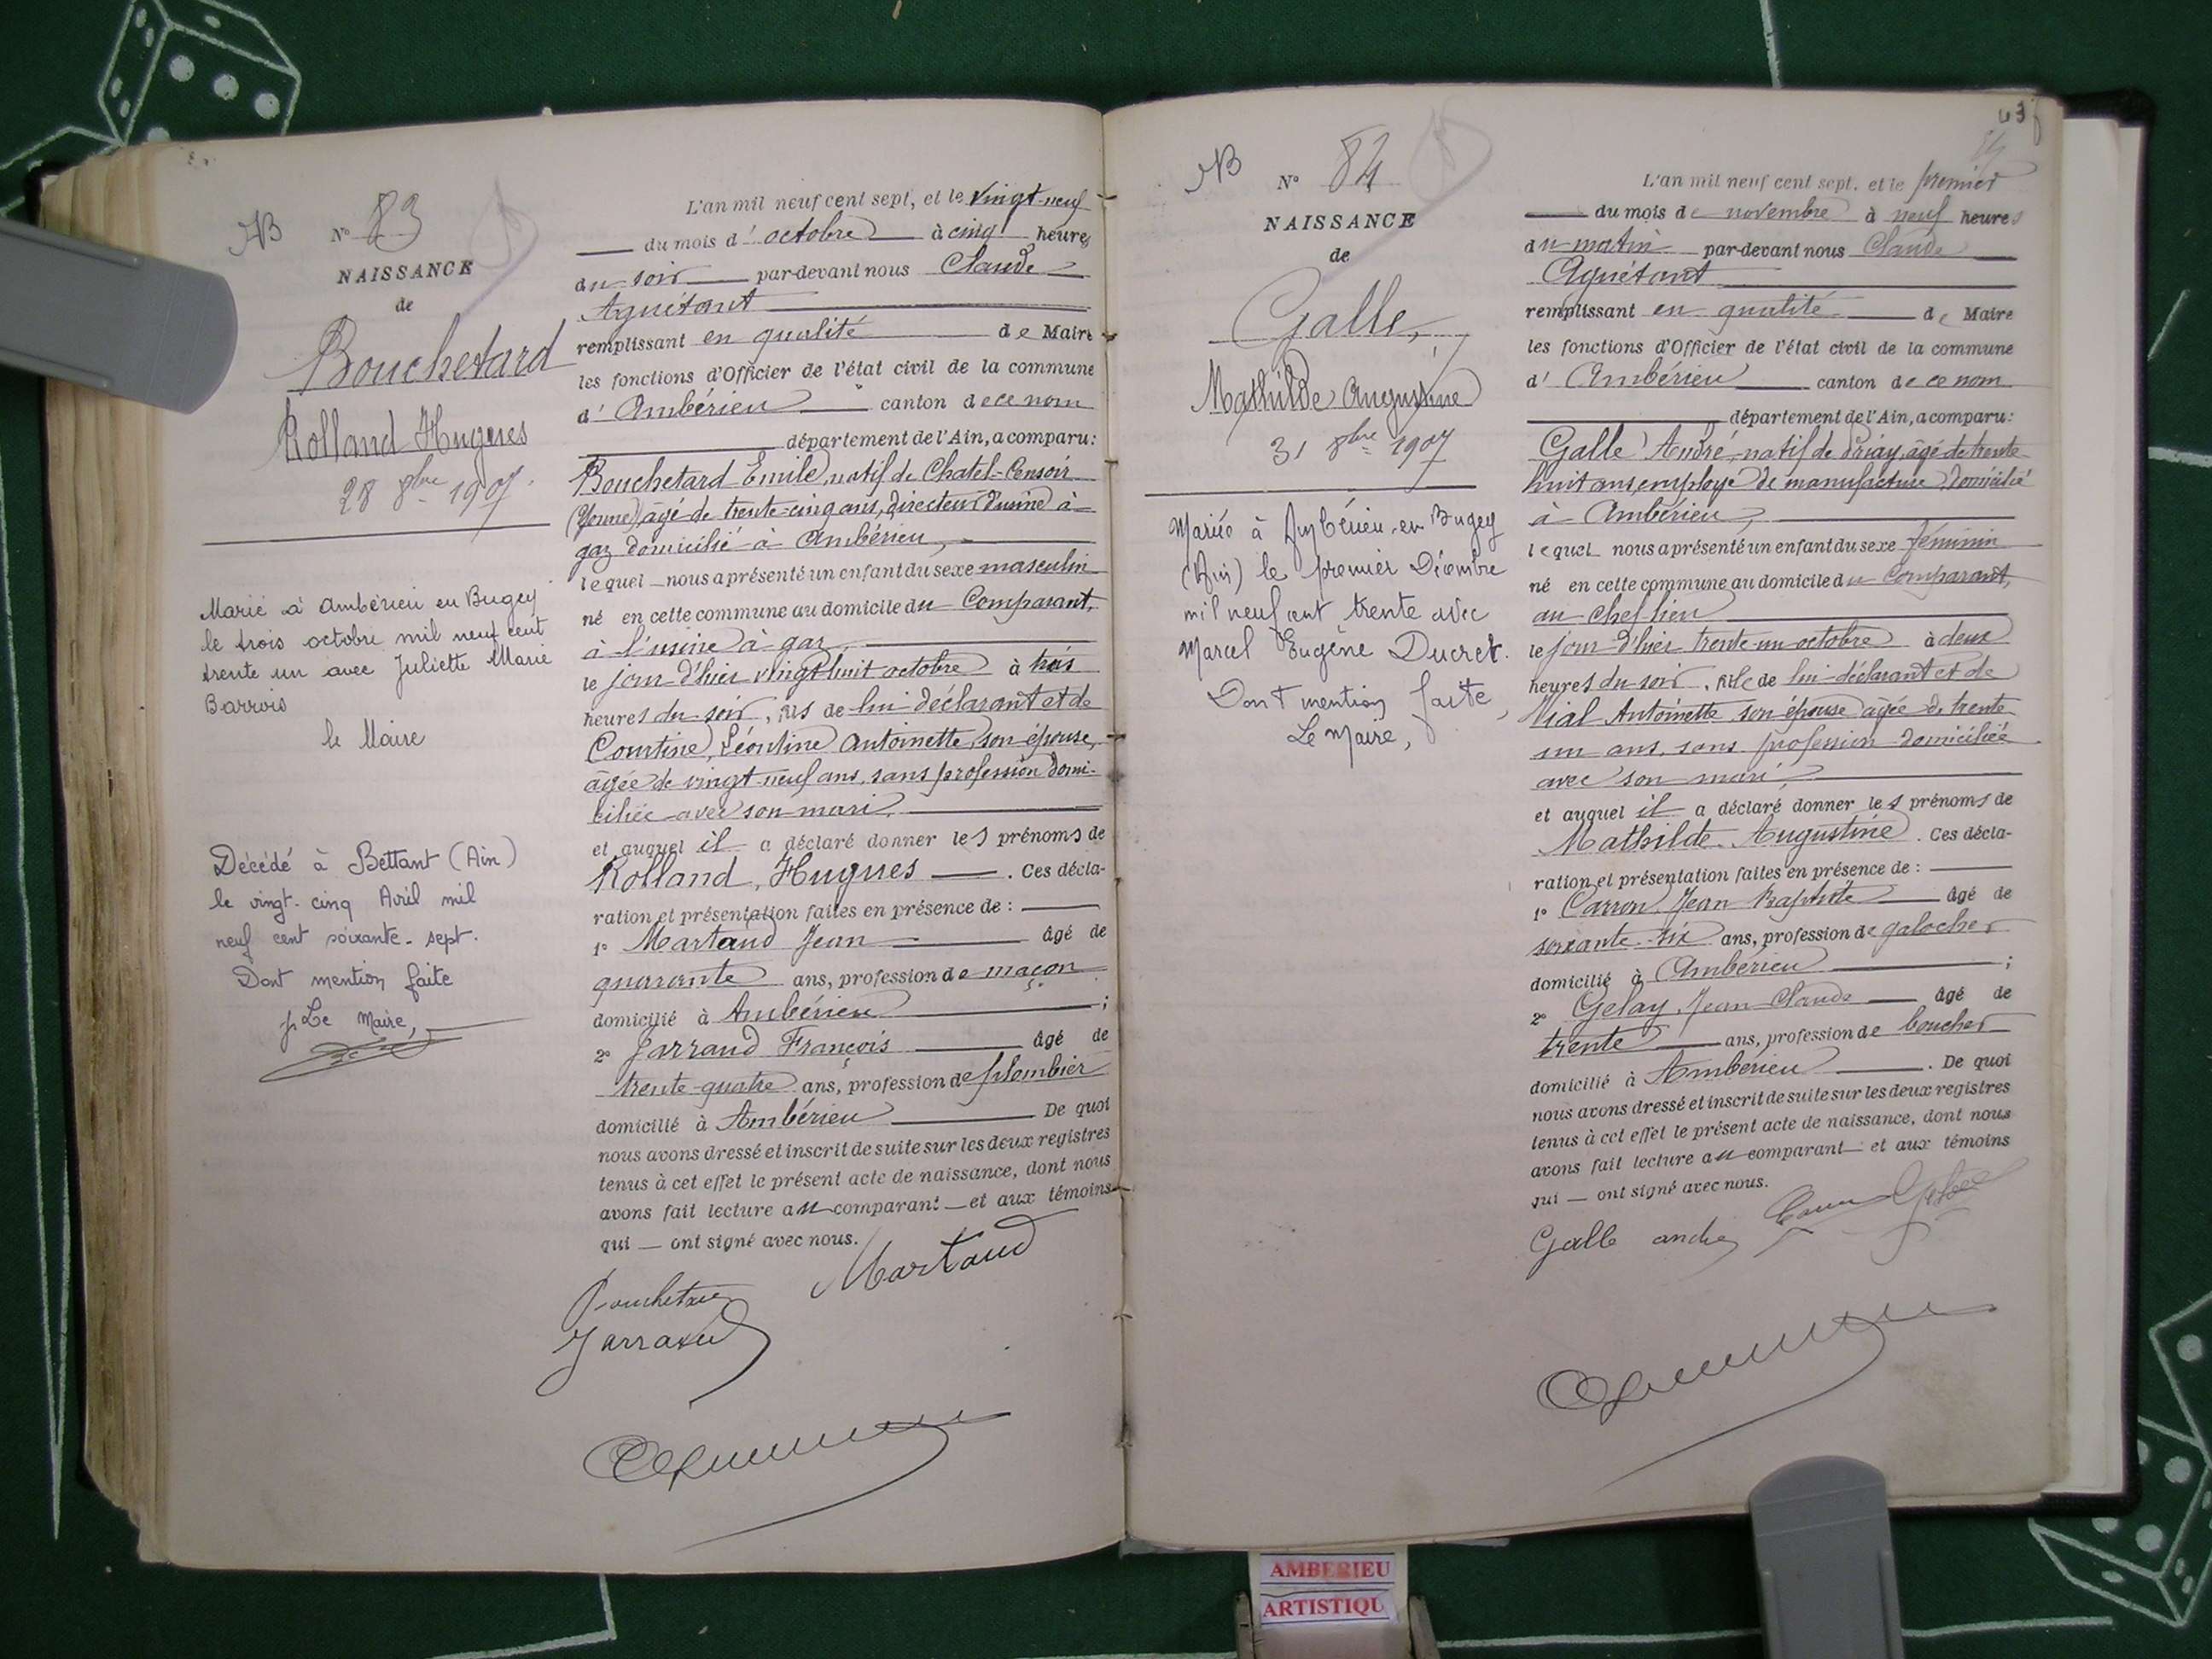 AB
N° 83
NAISSANCE
de
Bouchetard
Rolland Hugues
28 8bre 1907.
Marié à Ambérieu en Bugey
le trois octobre mil neuf cent
trente un avec Juliette Marie
Barrois
le Maire
Décédé à Bettant (Ain)
le vingt-cinq Avril mil
neuf cent soixante-sept.
Dont mention faite
p. Le Maire,
L'an mil neuf cent sept, et le vingt-neuf
du mois d'octobre à cinq heures
du soir par-devant nous Claude
Aguétant
remplissant en qualité de Maire
les fonctions d'Officier de l'état civil de la commune
d'Ambérieu canton de ce nom
département de l'Ain, a comparu:
Bouchetard Emile, natif de Chatel-Censoir
(Yonne), âgé de trente-cinq ans, directeur d'usine à
gaz domicilié à Ambérieu,
lequel nous a présenté un enfant du sexe masculin
né en cette commune au domicile du Comparant,
à l'usine à gaz,
le jour d'hier vingt-huit octobre à trois
heures du soir, fils de lui déclarant et de
Courtine, Léontine Antoinette, son épouse,
âgée de vingt-neuf ans, sans profession domi-
ciliée avec son mari,
et auquel il a déclaré donner les prénoms de
Rolland, Hugues. Ces décla-
ration et présentation faites en présence de :
1° Martaud Jean âgé de
quarante ans, profession de maçon
domicilié à Ambérieu ;
2° Jarraud François âgé de
trente-quatre ans, profession de plombier
domicilié à Ambérieu De quoi
nous avons dressé et inscrit de suite sur les deux registres
tenus à cet effet le présent acte de naissance, dont nous
avons fait lecture au comparant et aux témoins
qui ont signé avec nous.
Martaud
Bouchetard
Jarraud
43
AB
N° 84
NAISSANCE
de
Galle,
Mathilde Augustine
31 8bre 1907
Mariée à Ambérieu-en-Bugey
(Ain) le premier Décembre
mil neuf cent trente avec
Marcel Eugène Ducret.
Dont mention faite,
Le Maire,
L'an mil neuf cent sept, et le premier
du mois de novembre à neuf heures
du matin par-devant nous Claude
Aguétant
remplissant en qualité de Maire
les fonctions d'Officier de l'état civil de la commune
d'Ambérieu canton de ce nom
département de l'Ain, a comparu:
Galle André, natif de Priay, âgé de trente
huit ans, employé de manufacture, domicilié
à Ambérieu,
lequel nous a présenté un enfant du sexe féminin
né en cette commune au domicile du Comparant,
au chef-lieu
le jour d'hier trente-un octobre à deux
heures du soir, fille de lui déclarant et de
Vial Antoinette son épouse âgée de trente
un ans, sans profession domiciliée
avec son mari
et auquel il a déclaré donner les prénoms de
Mathilde Augustine. Ces décla-
ration et présentation faites en présence de :
1° Carron, Jean Baptiste âgé de
soixante-six ans, profession de galocher
domicilié à Ambérieu ;
2° Gelay, Jean-Claude âgé de
trente ans, profession de boucher
domicilié à Ambérieu. De quoi
nous avons dressé et inscrit de suite sur les deux registres
tenus à cet effet le présent acte de naissance, dont nous
avons fait lecture au comparant et aux témoins
qui ont signé avec nous.
Galle andré
AMBERIEU
ARTISTIQU